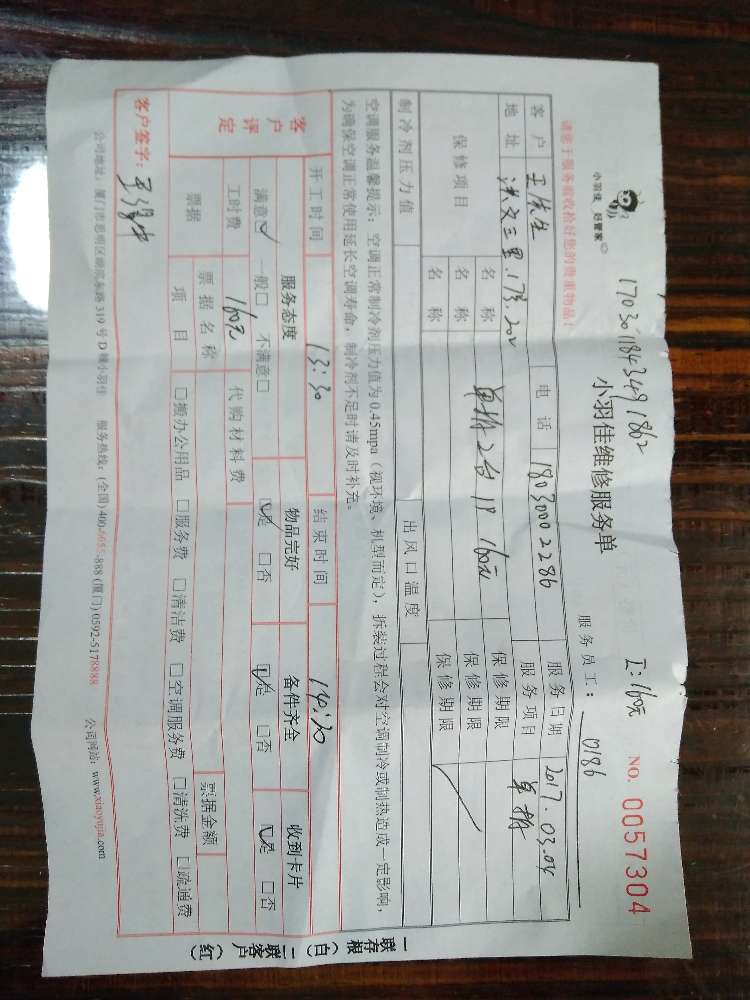 小羽佳 好管家
1703011843491862
I:160元
小羽佳维修服务单
NO. 0057304
请您于服务前收拾好您的贵重物品!
服务员工: 0186
客户 王先生 电话 18030002286 服务日期 2017.03.04
地址 洪文三里.173.202 服务项目 单拆
保修项目 名称 单拆2台1P 160元 保修期限
名称 保修期限
名称 保修期限
制冷剂压力值 出风口温度
空调服务温馨提示:空调正常制冷剂压力值为0.45mpa(视环境、机型而定),拆装过程会对空调制冷或制热造成一定影响,
为确保空调正常使用延长空调寿命,制冷剂不足时请及时补充。
开工时间 13:30 结束时间 14:20
客户评定 服务态度 物品完好 备件齐全 收到卡片
满意☑ 一般□ 不满意□ ☑是 □否 ☑是 □否 ☑是 □否
工时费 160元 代购材料费
票据 票据名称 票据金额
项目 □搬办公用品 □服务费 □清洁费 □空调服务费 □清洗费 □疏通费
客户签字:
公司地址:厦门市思明区 319号D幢小羽佳 服务热线:(全国)400-6655-888 (厦门)0592-5178888 公司网站:www.xiaoyujia.com
一联存根(白) 二联客户(红)